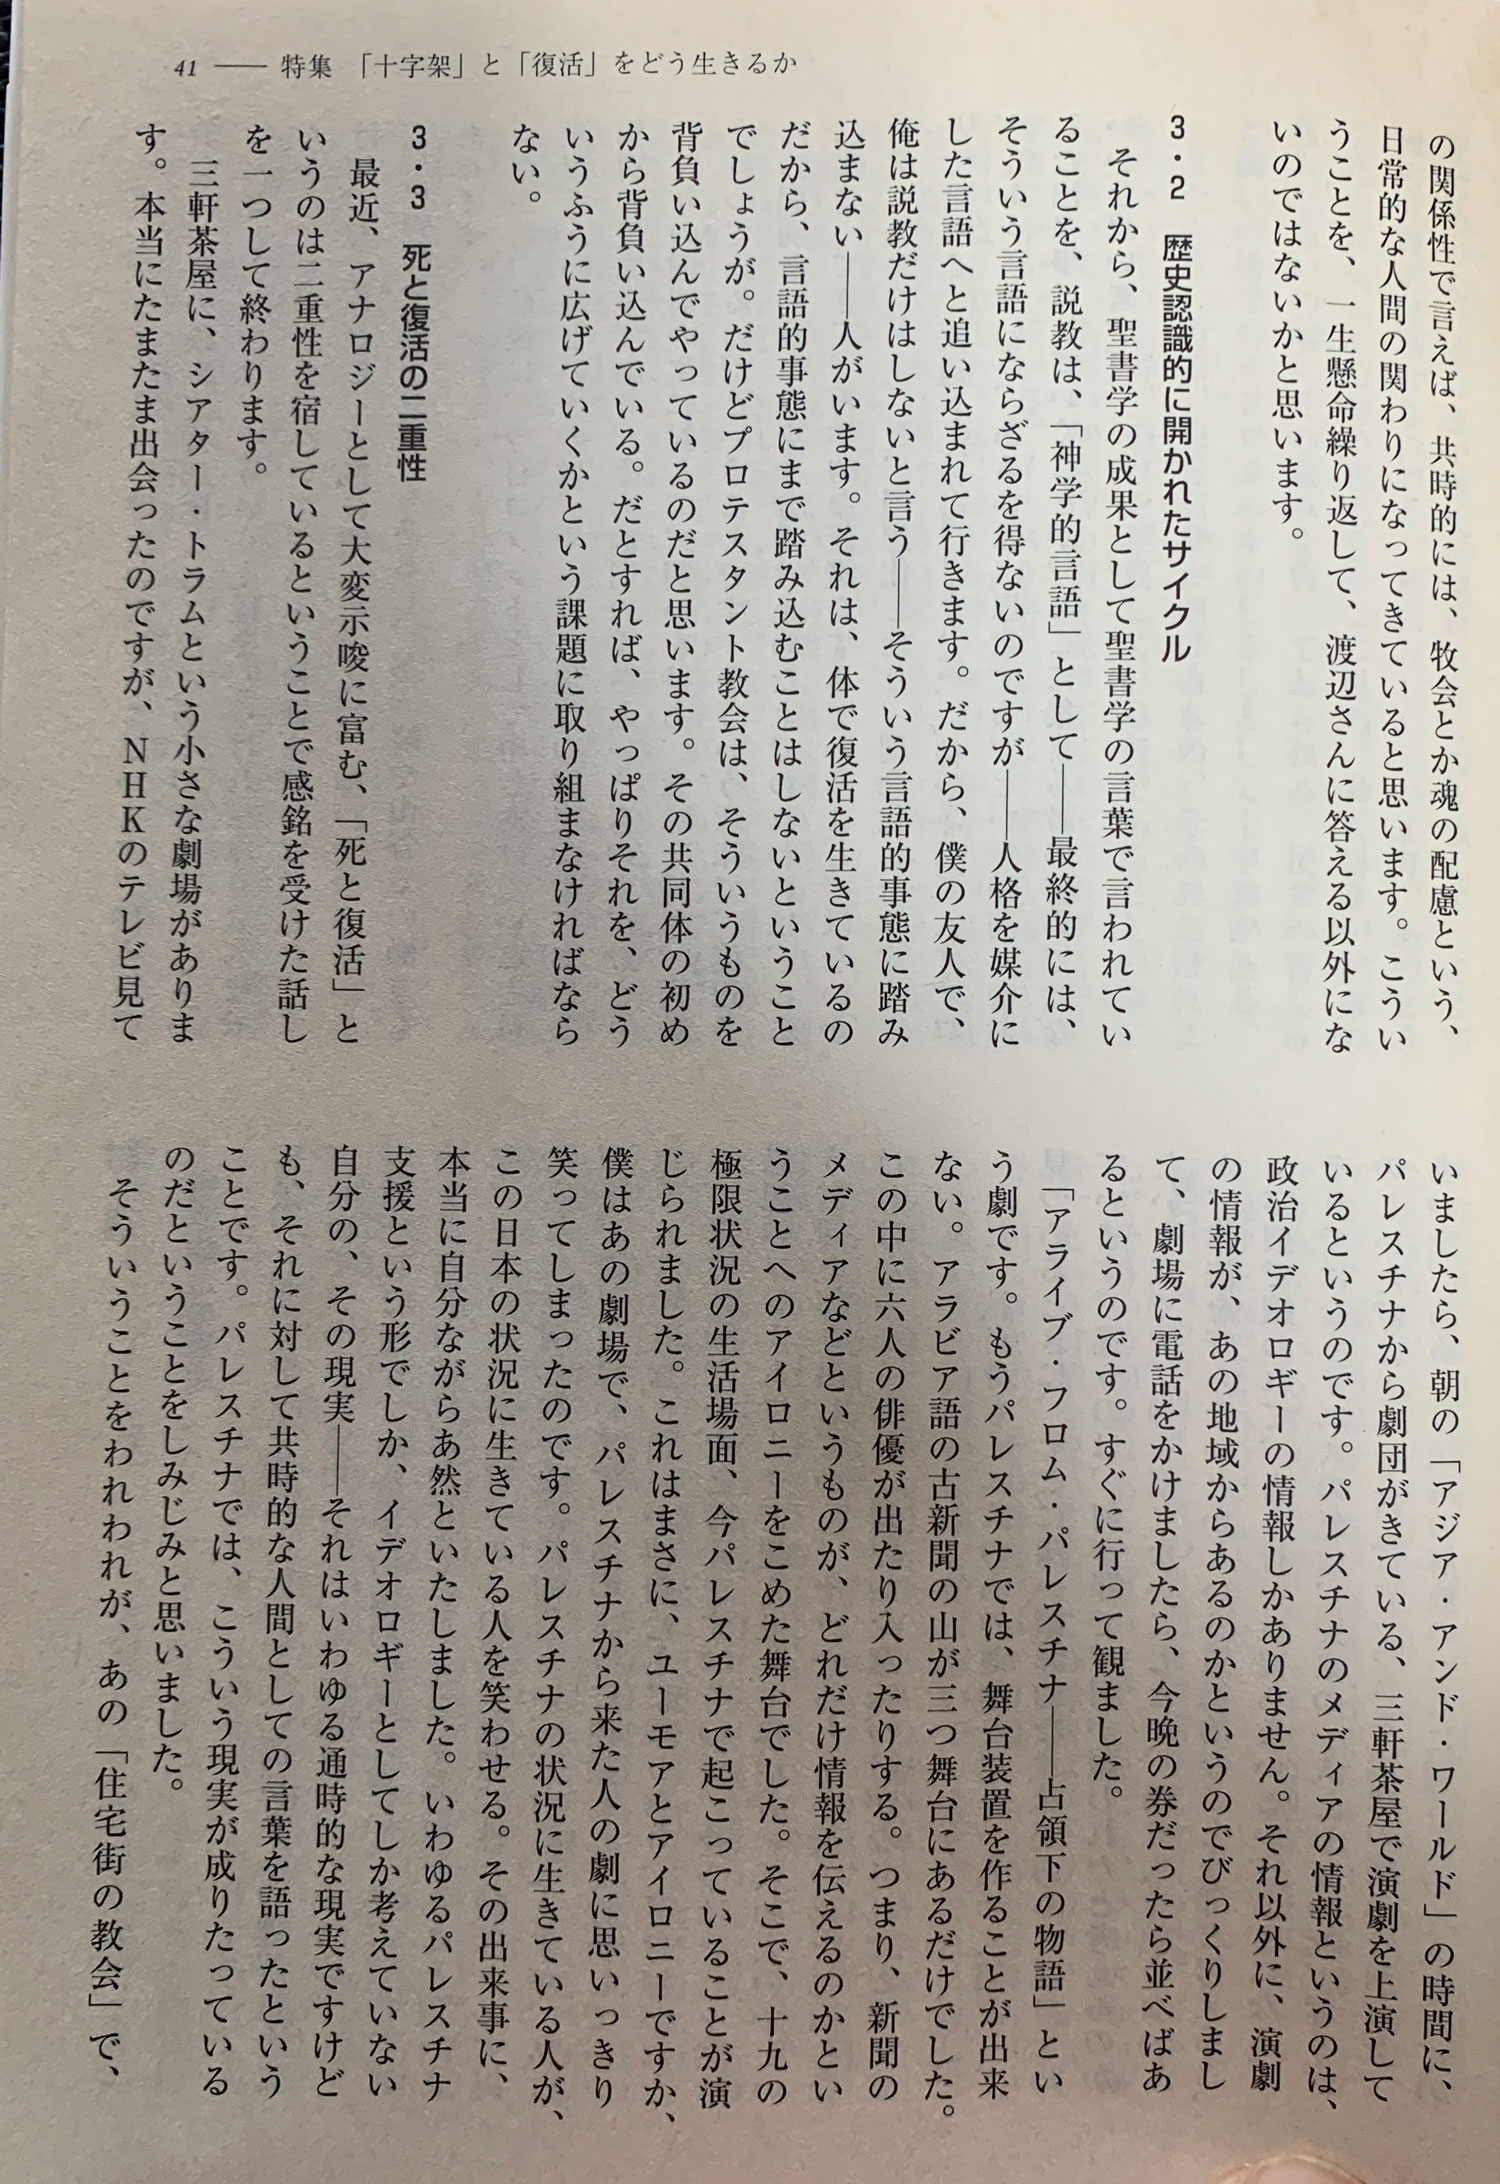 41 ── 特集 「十字架」と「復活」をどう生きるか
の関係性で言えば、共時的には、牧会とか魂の配慮という、
日常的な人間の関わりになってきていると思います。こうい
うことを、一生懸命繰り返して、渡辺さんに答える以外にな
いのではないかと思います。
3・2 歴史認識的に開かれたサイクル
それから、聖書学の成果として聖書学の言葉で言われてい
ることを、説教は、「神学的言語」として──最終的には、
そういう言語にならざるを得ないのですが──人格を媒介に
した言語へと追い込まれて行きます。だから、僕の友人で、
俺は説教だけはしないと言う──そういう言語的事態に踏み
込まない──人がいます。それは、体で復活を生きているの
だから、言語的事態にまで踏み込むことはしないということ
でしょうが。だけどプロテスタント教会は、そういうものを
背負い込んでやっているのだと思います。その共同体の初め
から背負い込んでいる。だとすれば、やっぱりそれを、どう
いうふうに広げていくかという課題に取り組まなければなら
ない。
3・3 死と復活の二重性
最近、アナロジーとして大変示唆に富む、「死と復活」と
いうのは二重性を宿しているということで感銘を受けた話し
を一つして終わります。
三軒茶屋に、シアター・トラムという小さな劇場がありま
す。本当にたまたま出会ったのですが、NHKのテレビ見て
いましたら、朝の「アジア・アンド・ワールド」の時間に、
パレスチナから劇団がきている、三軒茶屋で演劇を上演して
いるというのです。パレスチナのメディアの情報というのは、
政治イデオロギーの情報しかありません。それ以外に、演劇
の情報が、あの地域からあるのかというのでびっくりしまし
て、劇場に電話をかけましたら、今晩の券だったら並べばあ
るというのです。すぐに行って観ました。
「アライブ・フロム・パレスチナ──占領下の物語」とい
う劇です。もうパレスチナでは、舞台装置を作ることが出来
ない。アラビア語の古新聞の山が三つ舞台にあるだけでした。
この中に六人の俳優が出たり入ったりする。つまり、新聞の
メディアなどというものが、どれだけ情報を伝えるのかとい
うことへのアイロニーをこめた舞台でした。そこで、十九の
極限状況の生活場面、今パレスチナで起こっていることが演
じられました。これはまさに、ユーモアとアイロニーですか、
僕はあの劇場で、パレスチナから来た人の劇に思いっきり
笑ってしまったのです。パレスチナの状況に生きている人が、
この日本の状況に生きている人を笑わせる。その出来事に、
本当に自分ながらあ然といたしました。いわゆるパレスチナ
支援という形でしか、イデオロギーとしてしか考えていない
自分の、その現実──それはいわゆる通時的な現実ですけど
も、それに対して共時的な人間としての言葉を語ったという
ことです。パレスチナでは、こういう現実が成りたっている
のだということをしみじみと思いました。
そういうことをわれわれが、あの「住宅街の教会」で、